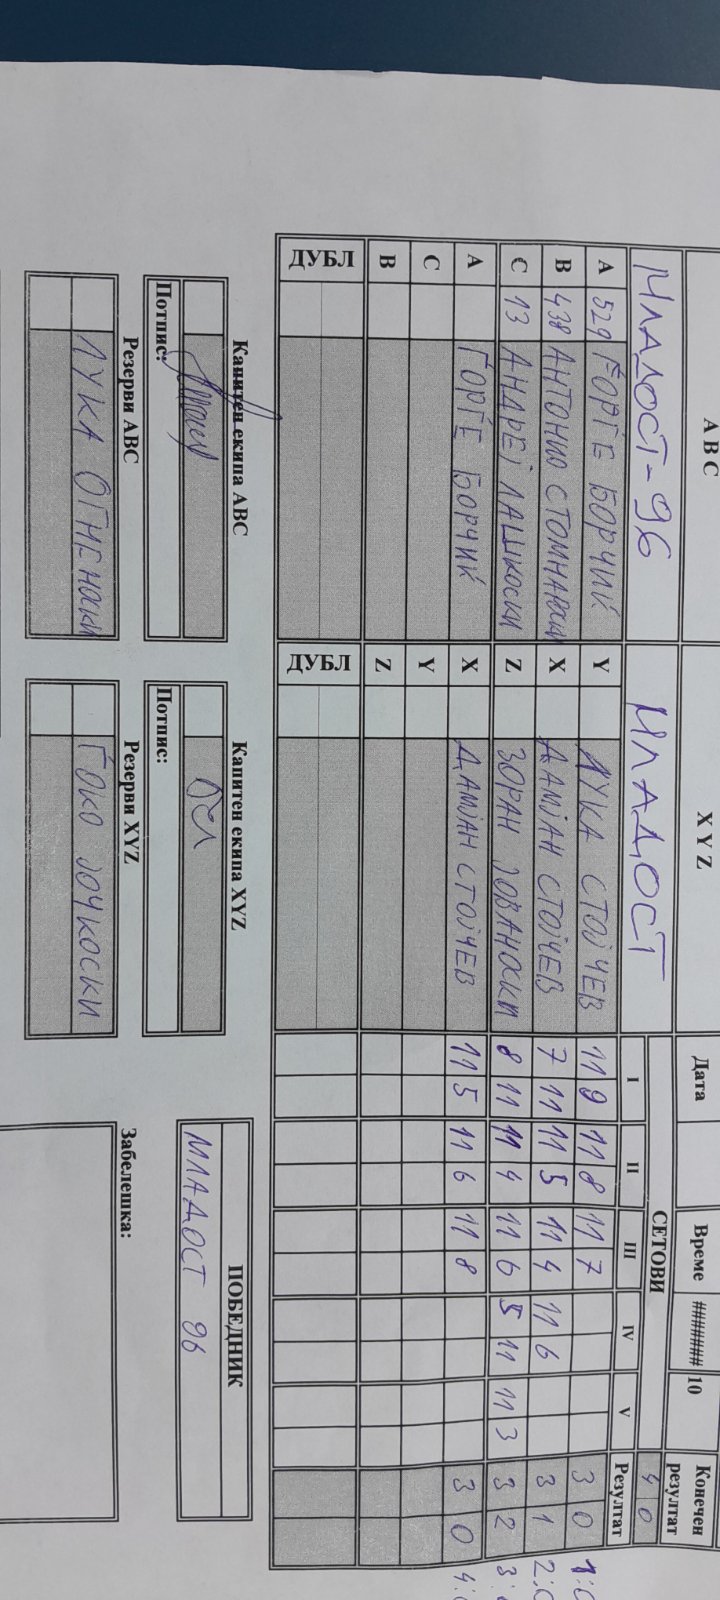 A B C X Y Z Дата Време ####### 10 Конечен резултат
МЛАДОСТ-96 МЛАДОСТ СЕТОВИ 4 0
I II III IV V Резултат
A 529 ЃОРЃЕ БОРЧИЌ Y ЛУКА СТОЈЧЕВ 11 9 11 8 11 7 3 0 1:0
B 438 АНТОНИО X ДАМЈАН СТОЈЧЕВ 7 11 11 5 11 4 11 6 3 1 2:0
C 13 АНДРЕЈ ЛАШКОСКИ Z ЗОРАН ЈОВАНОСКИ 8 11 11 4 11 6 5 11 11 3 3 2 3:
A ЃОРЃЕ БОРЧИЌ X ДАМЈАН СТОЈЧЕВ 11 5 11 6 11 8 3 0 4:
C Y
B Z
ДУБЛ ДУБЛ
Капитен екипа ABC Капитен екипа XYZ ПОБЕДНИК
Потпис: Потпис: МЛАДОСТ 96
Резерви ABC Резерви XYZ Забелешка:
ЛУКА ОГНЕНОСКИ ЃОКО ЈОЧКОСКИ